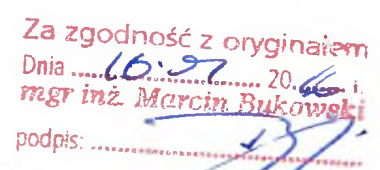 Za zgodność z oryginałem
Dnia ........ 20....... r.
mgr inż. Marcin Bukowski
podpis: ........